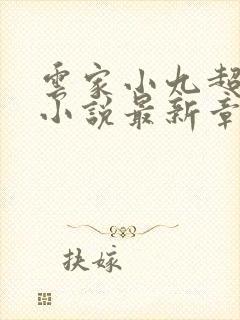 雲家小九超
小說最新章
扶嫁